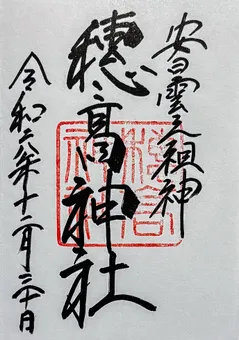 安曇之祖神
穂高神社
令和六年十二月三十日
穂高神社